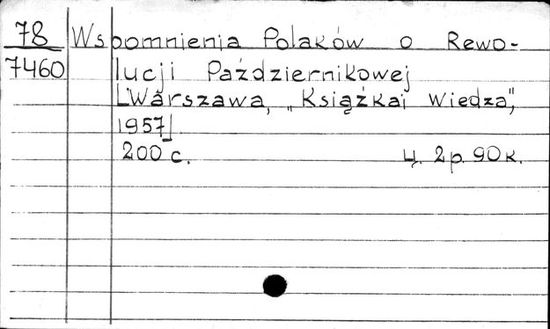 78 Wspomnienia Polaków o Rewo-
7460 lucji Październikowej
[Warszawa, "Książka i Wiedza",
1957]
200 с. ц. 2 р. 90 к.